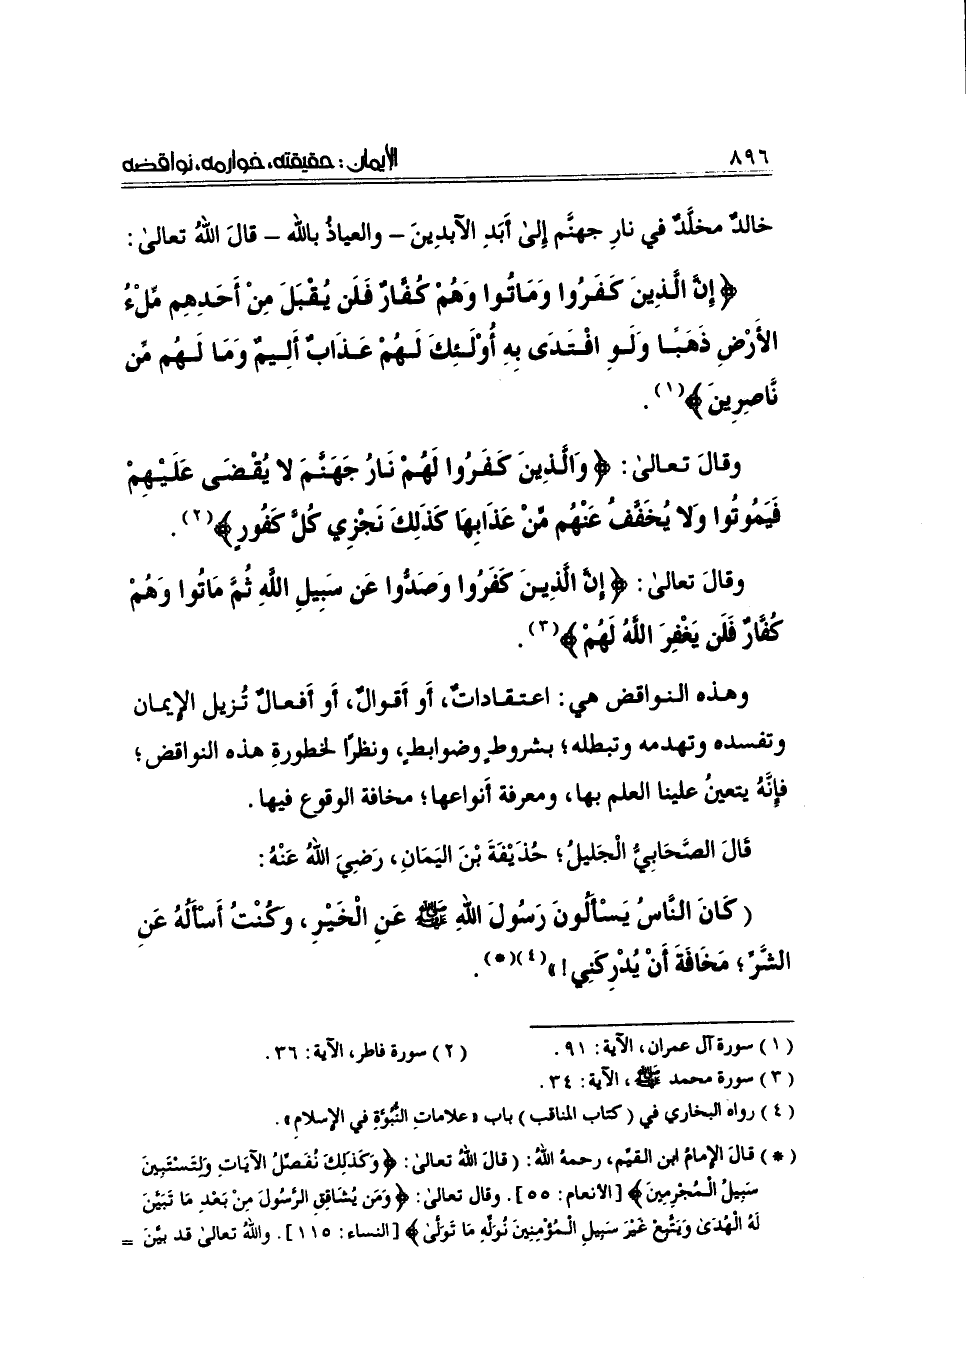 ٨٩٦
الأيمان : حقيقته، خوارمه، نواقضه
خالدٌ مخلَّدٌ في نارِ جهنَّم إلىٰ أَبَدِ الآبدِينَ – والعياذُ بالله – قالَ اللهُ تعالىٰ :
﴿ إِنَّ الَّذِينَ كَفَرُوا وَمَاتُوا وَهُمْ كُفَّارٌ فَلَن يُقْبَلَ مِنْ أَحَدِهِم مِّلْءُ
الأَرْضِ ذَهَبًا وَلَوِ افْتَدَى بِهِ أُوْلَئِكَ لَهُمْ عَذَابٌ أَلِيمٌ وَمَا لَهُم مِّن
نَّاصِرِينَ ﴾(١) .
وقالَ تعالىٰ : ﴿ وَالَّذِينَ كَفَرُوا لَهُمْ نَارُ جَهَنَّمَ لا يُقْضَى عَلَيْهِمْ
فَيَمُوتُوا وَلا يُخَفَّفُ عَنْهُم مِّنْ عَذَابِهَا كَذَلِكَ نَجْزِي كُلَّ كَفُورٍ ﴾(٢) .
وقالَ تعالىٰ : ﴿ إِنَّ الَّذِينَ كَفَرُوا وَصَدُّوا عَن سَبِيلِ اللَّهِ ثُمَّ مَاتُوا وَهُمْ
كُفَّارٌ فَلَن يَغْفِرَ اللَّهُ لَهُمْ ﴾(٣) .
وهذه النواقض هي : اعتقاداتٌ، أو أقوالٌ، أو أفعالٌ تُزيل الإيمان
وتفسده وتهدمه وتبطله؛ بشروطٍ وضوابطٍ، ونظرًا لخطورةِ هذه النواقض؛
فإنَّهُ يتعينُ علينا العلم بها، ومعرفة أنواعها؛ مخافة الوقوع فيها .
قَالَ الصَّحَابِيُّ الْجَلِيلُ؛ حُذَيْفَةَ بْنَ اليَمَانِ، رَضِيَ اللهُ عَنْهُ :
( كَانَ النَّاسُ يَسْأَلُونَ رَسُولَ اللهِ ﷺ عَنِ الْخَيْرِ ، وَكُنْتُ أَسْأَلُهُ عَنِ
الشَّرِّ ؛ مَخَافَةَ أَنْ يُدْرِكَنِي ! »(٤)(*) .
( ١ ) سورة آل عمران، الآية : ٩١ .
( ٢ ) سورة فاطر، الآية : ٣٦ .
( ٣ ) سورة محمد ﷺ ، الآية : ٣٤ .
( ٤ ) رواه البخاري في ( كتاب المناقب ) باب « علامات النُّبُوَّةِ في الإسلام » .
( * ) قالَ الإمامُ ابن القيِّم، رحمهُ اللهُ : ( قالَ اللهُ تعالىٰ : ﴿ وَكَذَلِكَ نُفَصِّلُ الآيَاتِ وَلِتَسْتَبِينَ
سَبِيلُ الْمُجْرِمِينَ ﴾ [ الأنعام : ٥٥ ] . وقال تعالىٰ : ﴿ وَمَن يُشَاقِقِ الرَّسُولَ مِنْ بَعْدِ مَا تَبَيَّنَ
لَهُ الْهُدَىٰ وَيَتَّبِعْ غَيْرَ سَبِيلِ الْمُؤْمِنِينَ نُوَلِّهِ مَا تَوَلَّىٰ ﴾ [ النساء : ١١٥ ] . واللهُ تعالىٰ قد بيَّنَ =